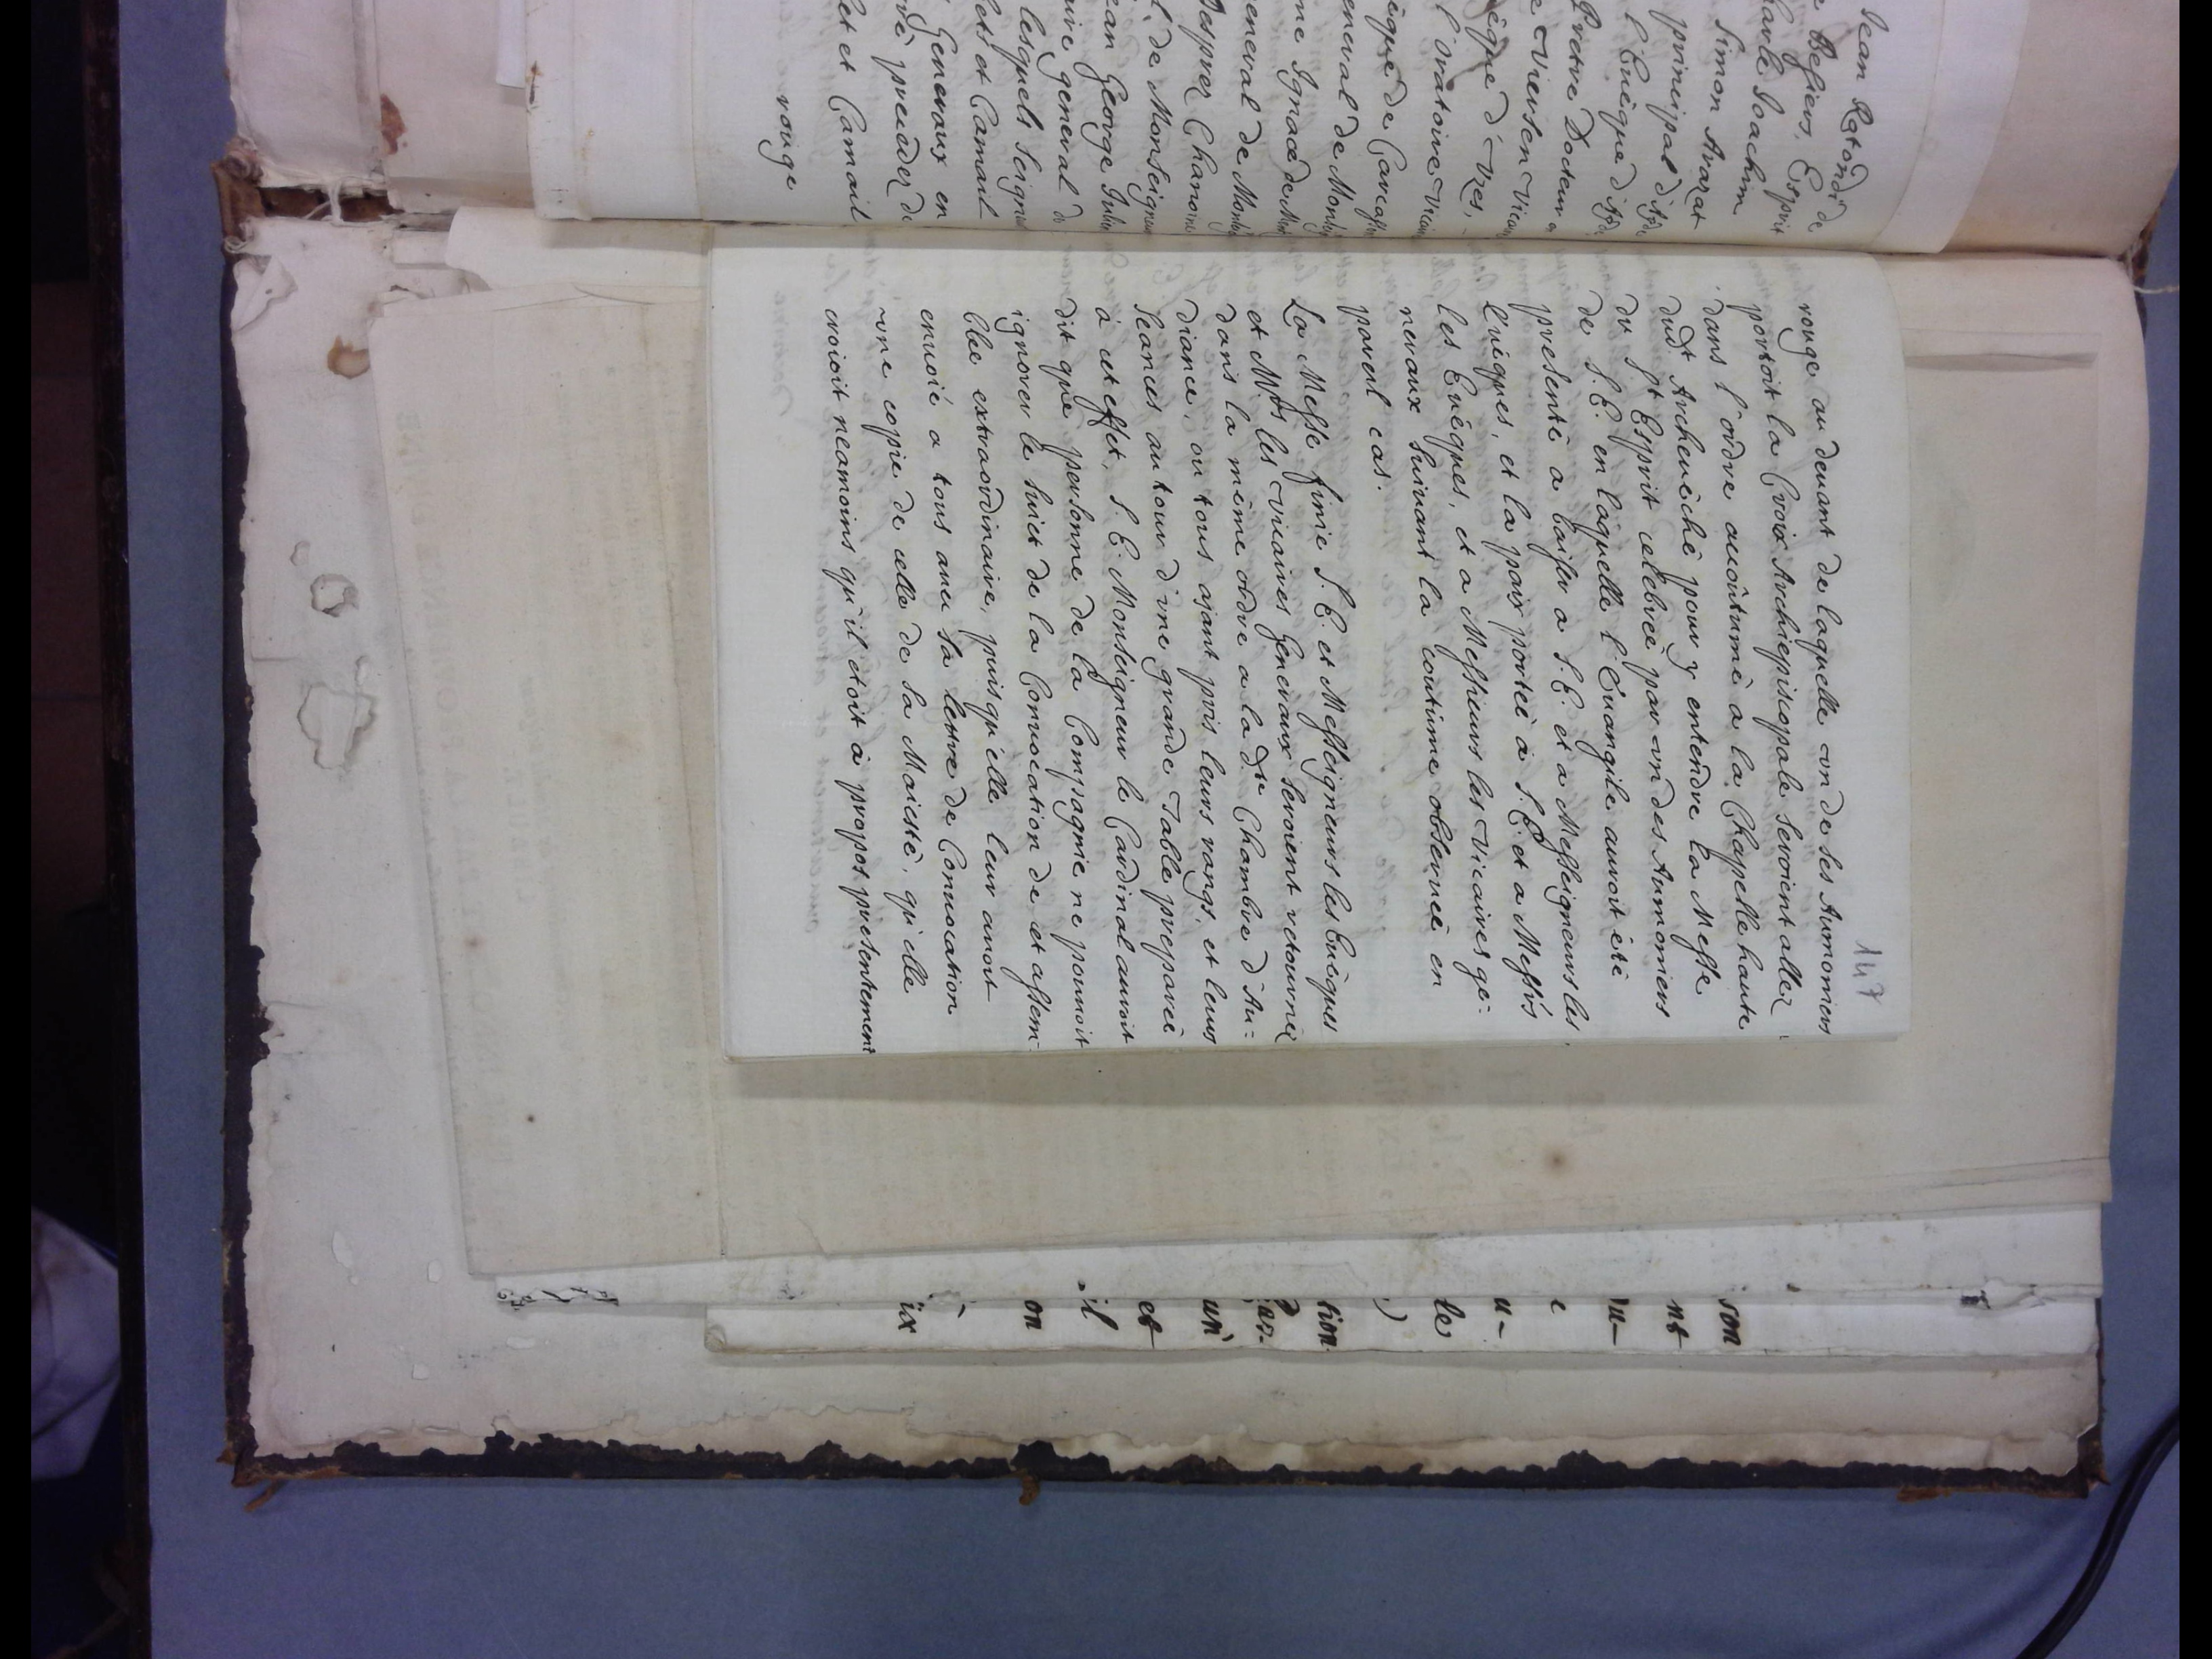 Jean Ratondi de
Besiers, Esprit
Joachim
Simon Avazat
principal d'Agde
l'Evêque d'Agde
Pretre Docteur
Vicaire
d'Vzes,
l'oratoire Vicaire
êque de Carcass
eneral de Monsg
me Ignace de
eneral de Monsg
Despres Chanoine
de Monseigneur
ean George
aire general de
lesquels seigne
et Camail
Generaux en
preceder de
et et Camail
rouge
147
rouge au deuant de laquelle vn de ses Aumoniers
portoit la Croix Archiepiscopale seroient allez
dans l'ordre accoûtumé a la Chapelle haute
dudt Archeuêché pour y entendre la Messe
du St Esprit celebreé par vn des Aumoniers
de S.E. en laquelle l'Euangile auroit été
presenté a baiser a S.E. et a Messeigneurs les
Euêques, et la paix porteé a S.E. et a Messrs
les Euêques, et a Messieurs les Vicaires ge-
neraux suiuant la coutume obserueé en
pareil cas.
La Messe finie S.E. et Messeigneurs les Euêques
et Mrs les Vicaires Generaux seroient retournez
dans la même ordre a la dte Chambre d'Au-
diance, ou tous ajant pris leurs rangs, et leurs
seances autour d'vne grande Table prepareé
a cet effet, S.E. Monseigneur le Cardinal auroit
dit que personne de la Compagnie ne pouuoit
ignorer le suiet de la Conuocation de cet assem-
bleé extraordinaire, puis qu'elle leur auoit
enuoié a tous auec sa lettre de Conuocation
vne copie de celle de sa Maiesté, qu'elle
croioit neamoins qu'il etoit a propos presentement
son
nt
u-
e
u-
le
)
tion
un
et
il
on
ux